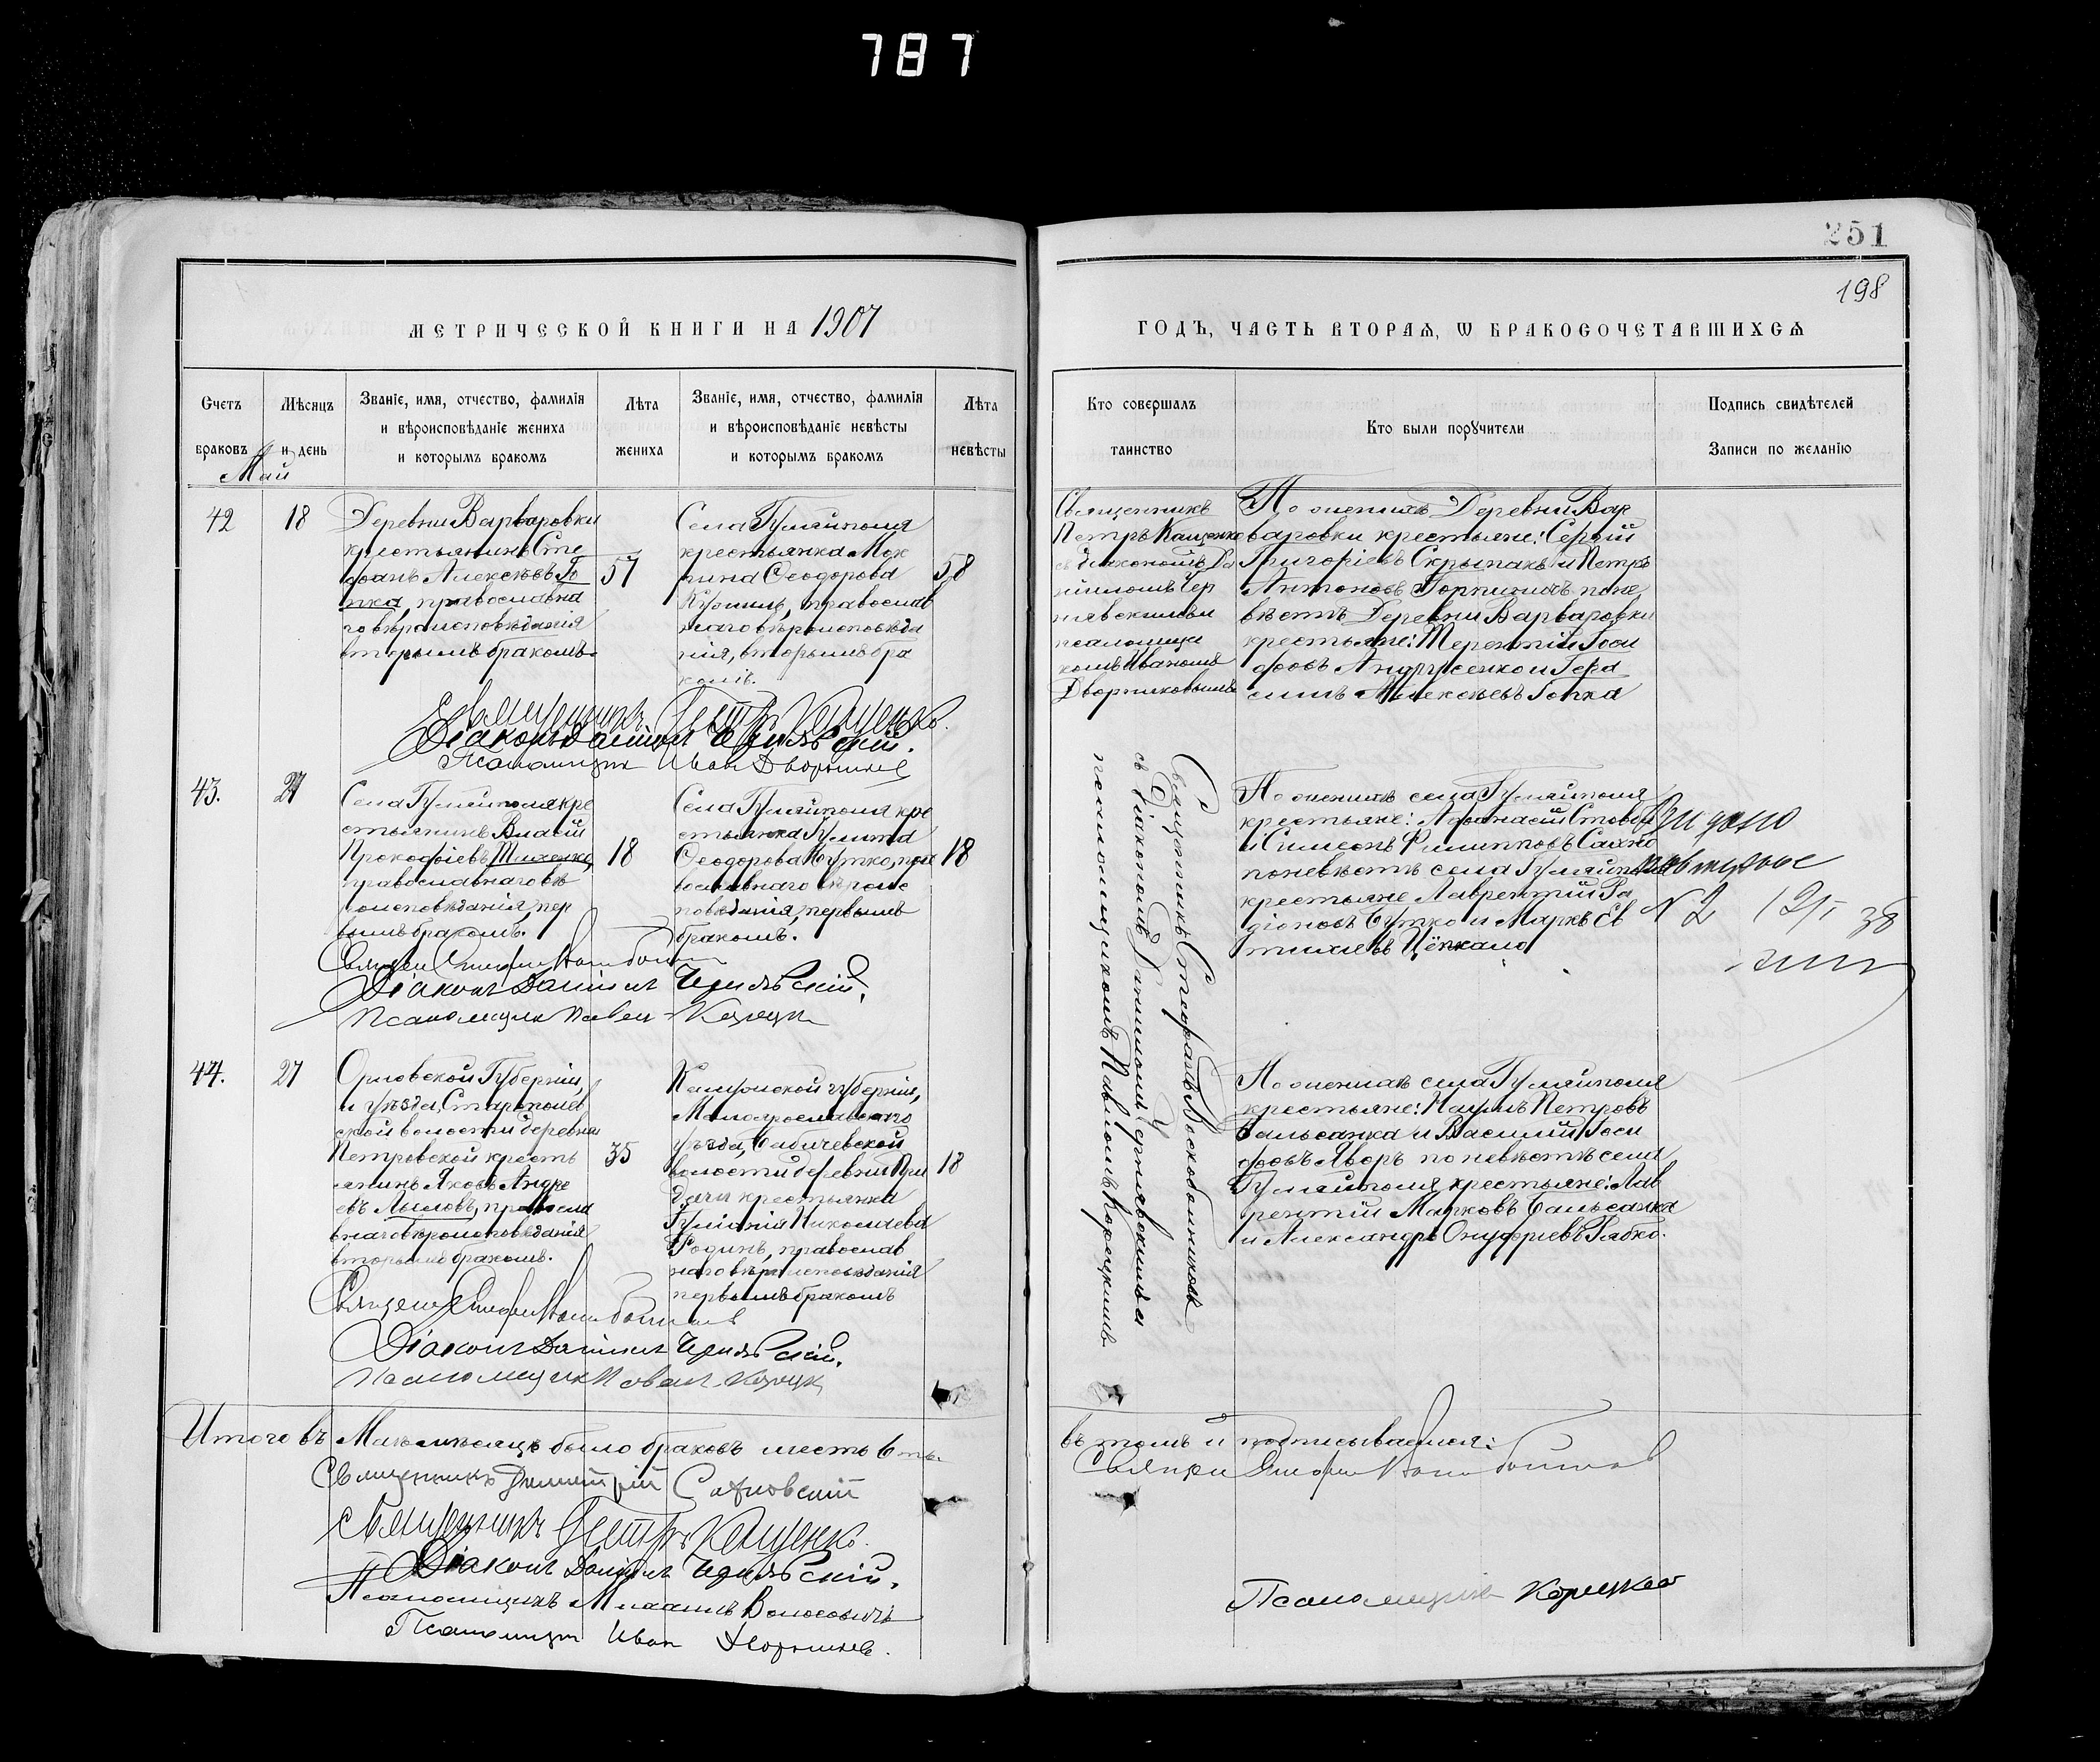 787
251
198
МЕТРИЧЕСКОЙ КНИГИ НА 1907
ГОДЪ, ЧАСТЬ ВТОРАЯ, Ѡ БРАКОСОЧЕТАВШИХСѦ
Счетъ браковъ
Мѣсяцъ и день
Званіе, имя, отчество, фамилія
и вѣроисповѣданіе жениха
и которымъ бракомъ
Лѣта жениха
Званіе, имя, отчество, фамилія
и вѣроисповѣданіе невѣсты
и которымъ бракомъ
Лѣта невѣсты
Кто совершалъ
таинство
Кто были порꙋчители
Подпись свидѣтелей
Записи по желанію
Май
42
18
Деревни Варваровки
крестьянинъ Сте
фанъ Алексѣевъ Го
пка, православна
го вѣроисповѣданія
вторымъ бракомъ.
57
Села Гуляйполя
крестьянка Мок
рина Ѳеодорова
православ
наго вѣроисповѣда
нія, вторымъ бра
комъ.
58
Священникъ
Петръ Кащенко
съ діакономъ Да
ніиломъ Чер
нявскимъ и
псаломщи
комъ Иваномъ
Дворниковымъ
По женихѣ Деревни Вар
варовки крестьяне: Сергій
Григоріевъ Скрыпакъ и Петръ
Антоновъ по не
вѣстѣ Деревни Варваровки
крестьяне: Терентій Іоси
фовъ Андрусенко и Гера
симъ Алексѣевъ Гопка
Священникъ Петръ Кащенко.
Діаконъ Даніилъ Чернявскій.
Псаломщик Иван Дворников
43.
27
Села Гуляйполя кре
стьянинъ Власій
Прокофіевъ Тихенко,
православнаго вѣ
роисповѣданія, пер
вымъ бракомъ.
18
Села Гуляйполя кре
стьянка Гулита
Ѳеодорова Бутко, пра
вославнаго вѣроис
повѣданія, первымъ
бракомъ.
18
Священникъ Стефанъ Воскобойниковъ
съ Діакономъ Даніиломъ Чернявскимъ и
псаломщикомъ Павломъ Корецкимъ
По женихѣ села Гуляйполя
крестьяне: Афанасій
и Симеонъ Филипповъ Сахно
по невѣстѣ села Гуляйполя
крестьяне Лаврентій Ра
діоновъ Бутко и Маркъ Ев
тихіевъ
Видано
повторное
N 2
38
Діаконъ Даніилъ Чернявскій.
Псаломщик Павел Корецкій
44.
27
Орловской Губерніи,
и уѣзда,
ской волости деревни
Петровской кресть
янинъ Яковъ Андре
евъ Лыловъ, правосла
внаго вѣроисповѣданія
вторымъ бракомъ.
35
Калужской губерніи,
Малоярославскаго
уѣзда, Бабичевской
волости деревни При
дачи крестьянка
Гликерія Николаева
Родинъ, православ
наго вѣроисповѣданія
первымъ бракомъ
18
По женихѣ села Гуляйполя
крестьяне: Наумъ Петровъ
Бальсанка и Василій Іоси
фовъ Яворъ по невѣстѣ села
Гуляйполя крестьяне: Лав
рентій Марковъ Бальсанка
и Александръ Онуфріевъ Рябко.
Діаконъ Даніилъ Чернявскій.
Псаломщик Павел Корецкій
Итого въ Маѣ мѣсяцѣ было браковъ шесть 6 ть.
въ томъ и подписываемся:
Священникъ Димитрій
Священникъ Петръ Кащенко.
Діаконъ Даніилъ Чернявскій.
Псаломщикъ Михаилъ Волосовичъ
Псаломщик Иван Дворников.
Псаломщикъ Корецкій